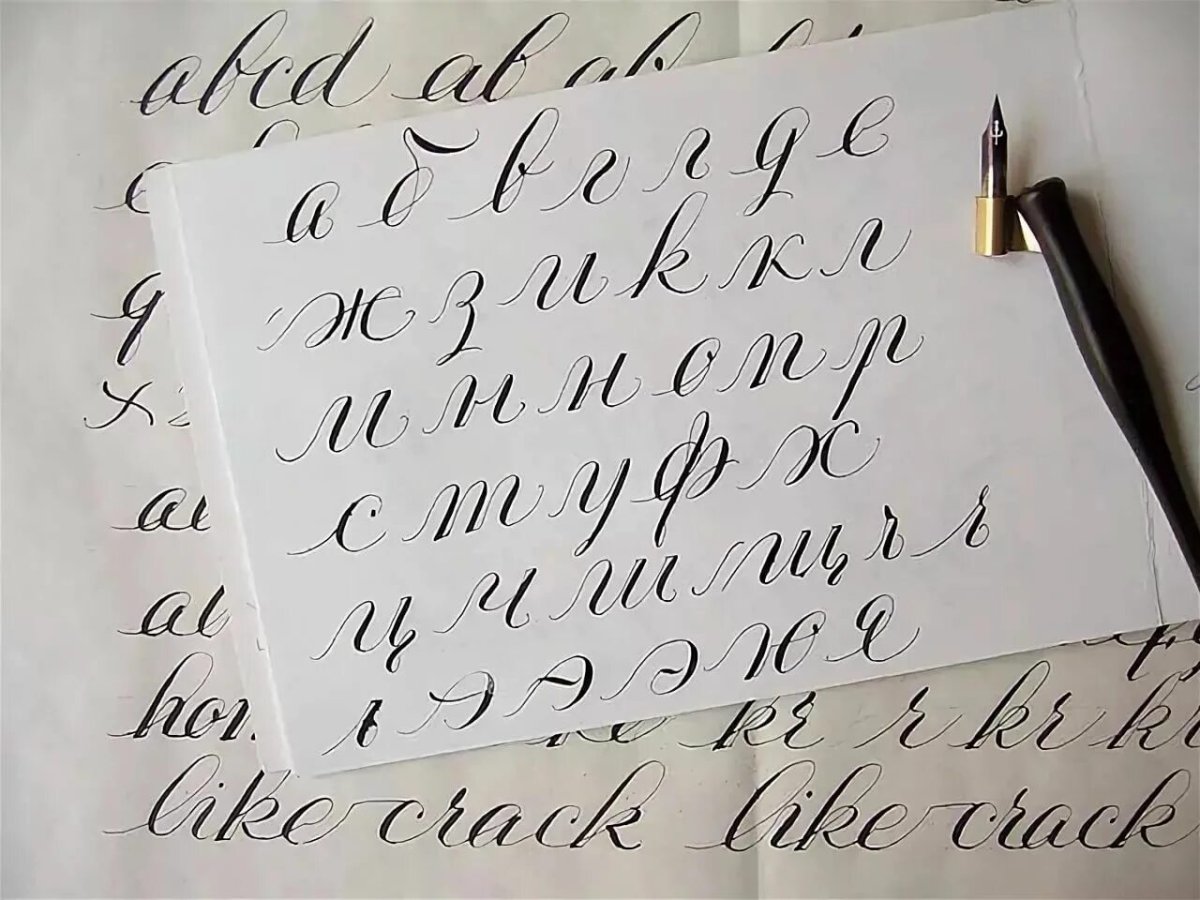 abcd ab ab
а б в г г д е
ж з и к к л
q
м н н о п р
x
с т у ф х
ц ч ш щ ъ ъ
ь э э э ю я
kr r kr
like crack like crack